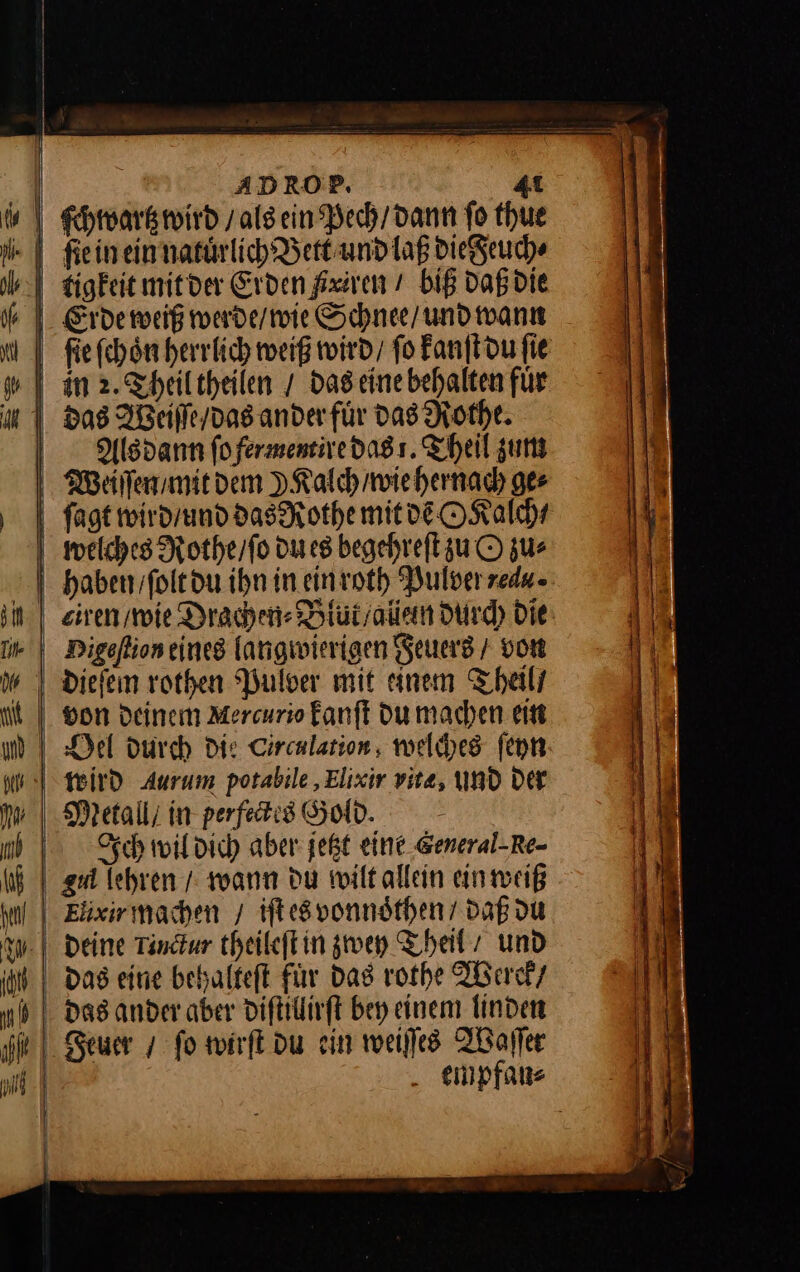 ADROP. 41
ſchwartz wird / als ein Pech / dann ſo thue
ſie in ein natuͤrlich Bett und laß die Feuch⸗
tigkeit mit der Erden fixiren / biß daß die
Erde weiß werde / wie Schnee / und wann
ſie ſchoͤn herrlich weiß wird / ſo kanſt du ſie
in 2. Theil theilen / das eine behalten fuͤr
das Weiſſe / das ander fuͤr das Rothe.
Alsdann ſo fermentire das 1. Theil zum
Weiſſen / mit dem ☽ Kalch / wie hernach ge⸗
ſagt wird / und das Rothe mit dẽ ☉ Kalch /
welches Rothe / ſo du es begehreſt zu ☉ zu⸗
haben / ſolt du ihn in ein roth Pulver redu-
ciren / wie Drachen⸗Blut / allein durch die
Digeſtion eines langwierigen Feuers / von
dieſem rothen Pulver mit einem Theil /
von deinem Mercurio kanſt du machen ein
Oel durch die Circulation, welches ſeyn
wird Aurum potabile, Elixir vitæ, und der
Metall / in perfectes Gold.
Ich wil dich aber jetzt eine General-Re-
gul lehren / wann du wilt allein ein weiß
Elixir machen / iſt es vonnoͤthen / daß du
deine Tinctur theileſt in zwey Theil / und
das eine behalteſt fuͤr das rothe Werck /
das ander aber diſtillirſt bey einem linden
Feuer / ſo wirſt du ein weiſſes Waſſer
empfan⸗